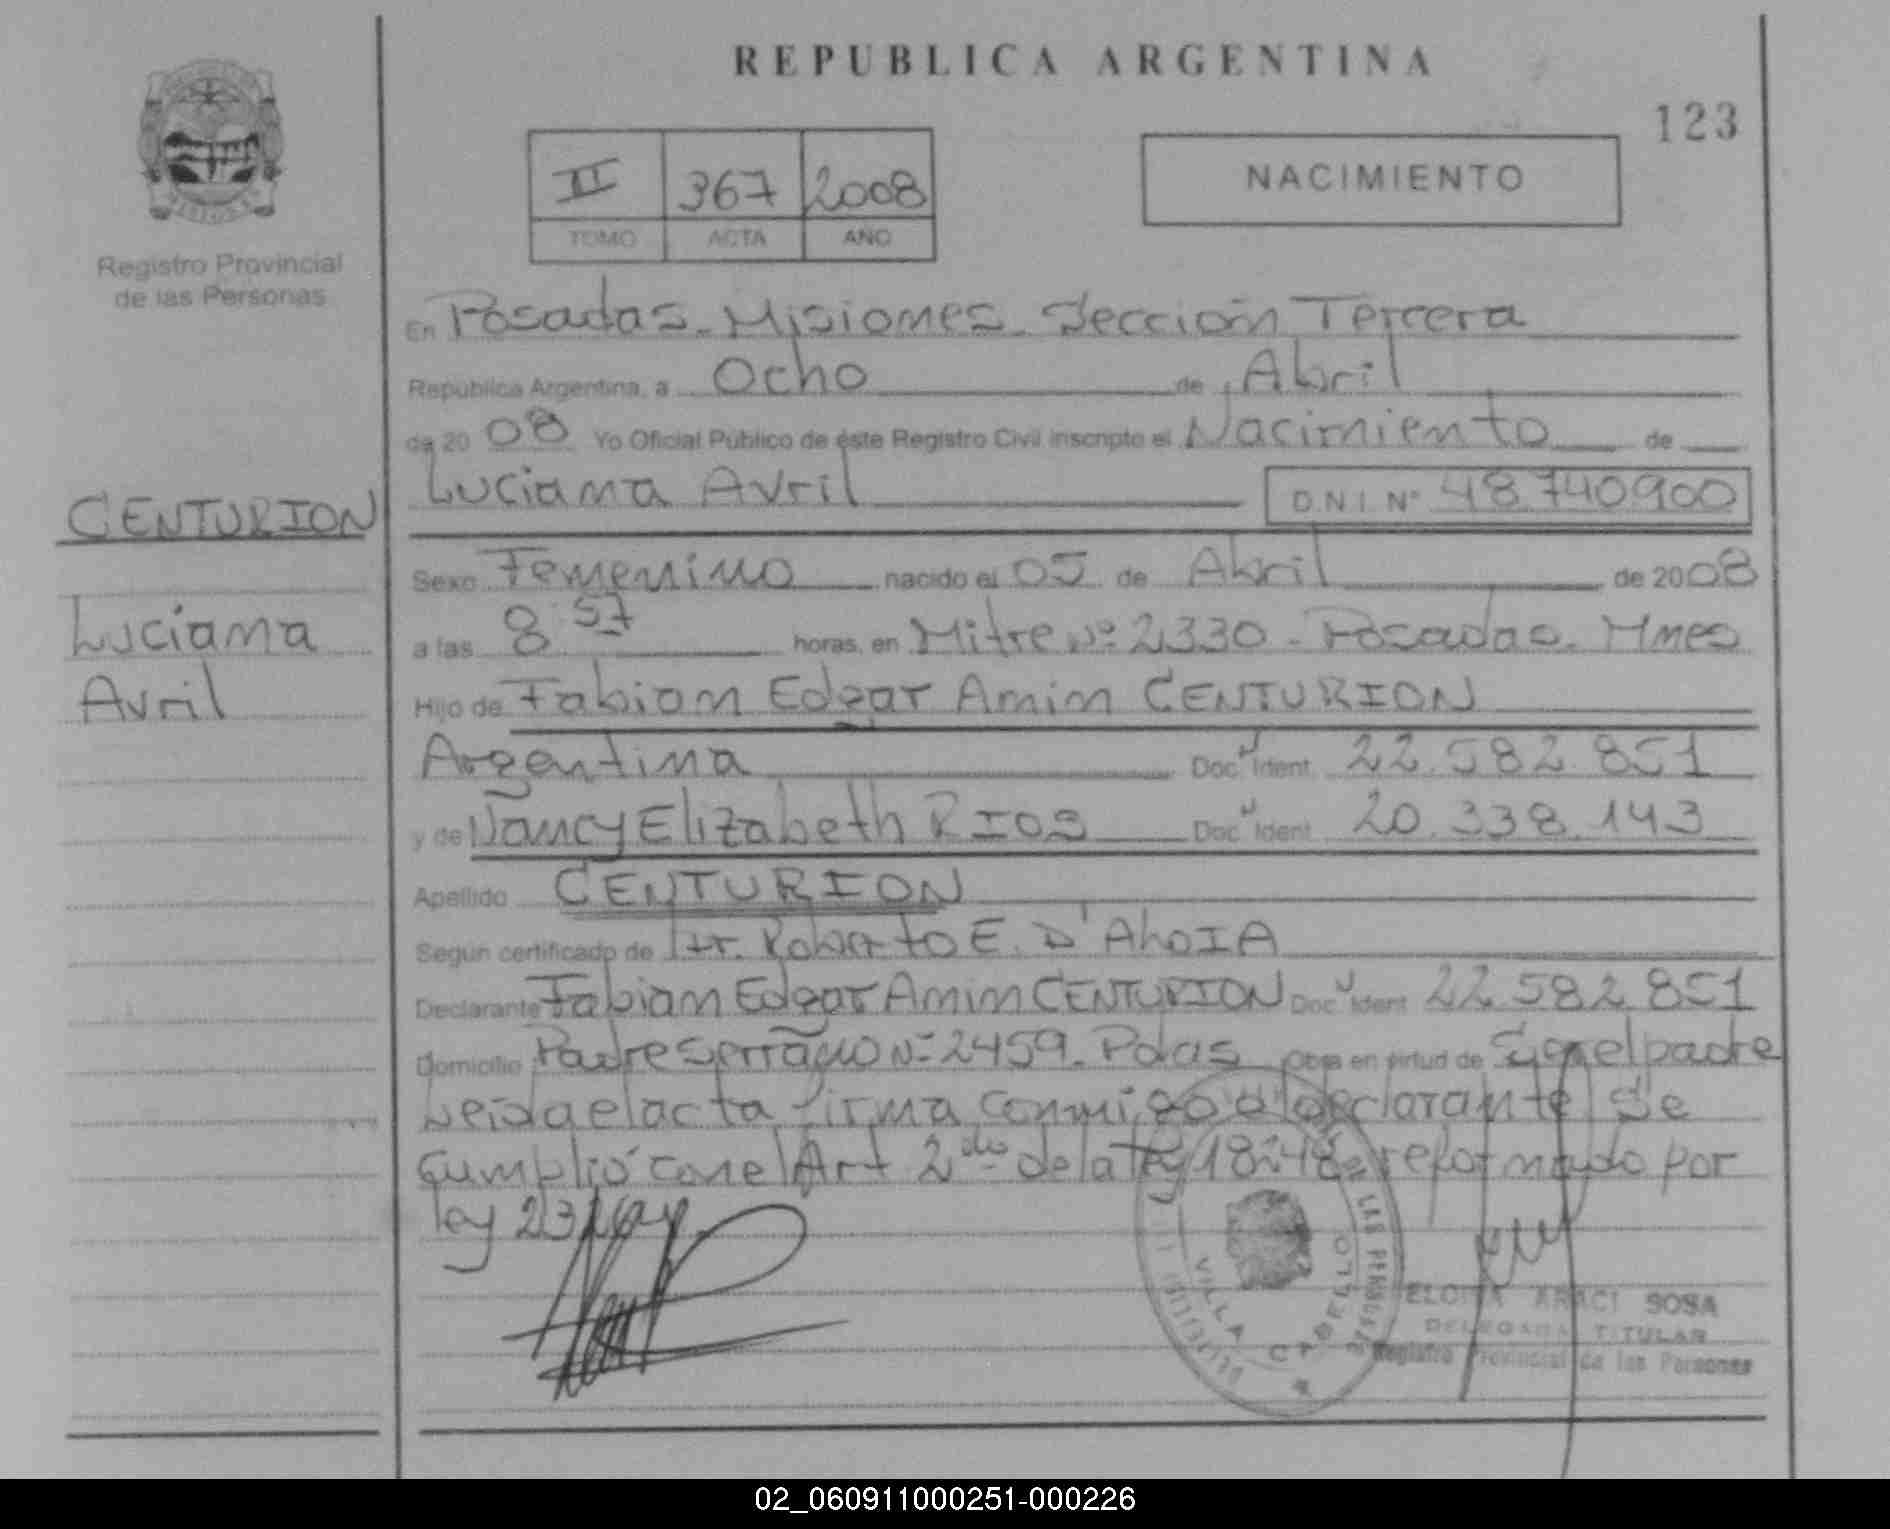 REPUBLICA ARGENTINA
123
II 367 2008
TOMO ACTA AÑO
NACIMIENTO
MISIONES
Registro Provincial
de las Personas
CENTURION
Luciana
Avril
En Posadas - Misiones - Sección Tercera
República Argentina, a Ocho de Abril
de 2008 Yo Oficial Público de éste Registro Civil inscripto el Nacimiento de
Luciana Avril D.N.I. Nº 48.740.900
Sexo Femenino nacido el 05 de Abril de 2008
a las 8 57 horas, en Mitre Nº 2330 - Posadas. Mnes
Hijo de Fabian Edgar Amin CENTURION
Argentina Doc Ident 22.582.851
y de Nancy Elizabeth RIOS Doc Ident 20.338.143
Apellido CENTURION
Según certificado de Roberto E.
Declarante Fabian Edgar Amin CENTURION Doc Ident 22.582.851
Domicilio Padre Serrano Nº 2459 - Pdas Obra en virtud de Ser el padre
Leida el acta firma conmigo el declarante Se
cumplió con el Art 2do de la ley 18248 reformado por
ley
DE LAS PERSONAS
VILLA CABELLO
ARACI SOSA
DELEGADA TITULAR
Registro Provincial de las Personas
02_060911000251-000226